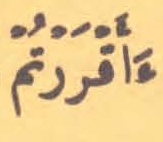 ءَأَقْرَرْتُمْ